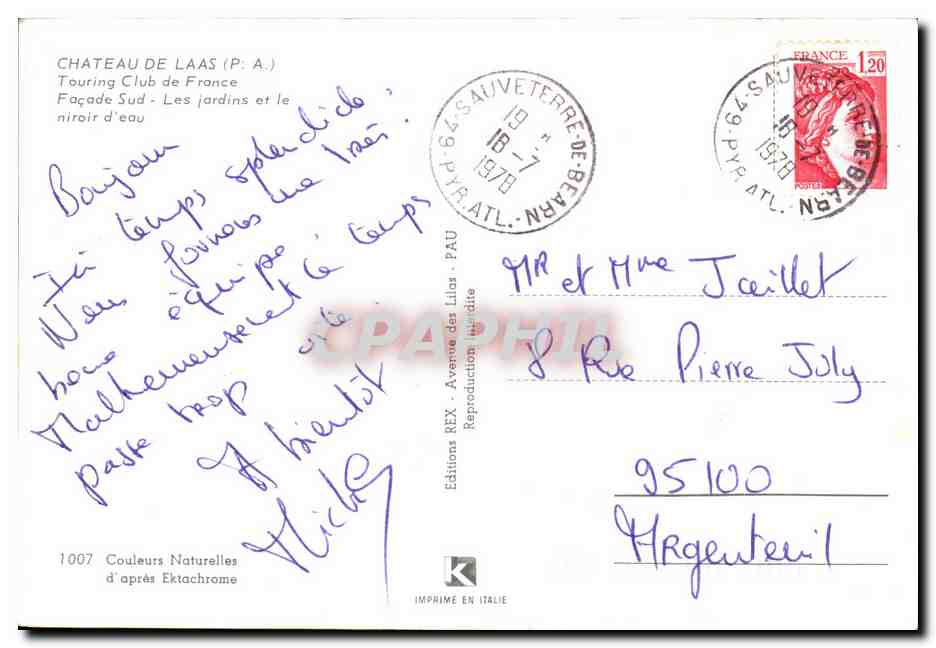 CHATEAU DE LAAS (P. A.)
Touring Club de France
Façade Sud - Les jardins et le
niroir d'eau
Bonjour
Ici temps splendide.
Nous formons une très
bonne équipe.
Malheureusement le temps
passe trop vite
A bientôt
Michel
1007 Couleurs Naturelles
d'après Ektachrome
Editions REX - Avenue des Lilas - PAU
Reproduction Interdite
K
IMPRIMÉ EN ITALIE
64-SAUVETERRE-DE-BEARN
19 H
18-7
1978
PYR.ATL.
FRANCE 1,20
POSTES
64-SAUVETERRE-DE-BEARN
19 H
18-7
1978
PYR.ATL.
Mr et Mme Jaillet
8 Rue Pierre July
95100
Argenteuil
CPAPHIL